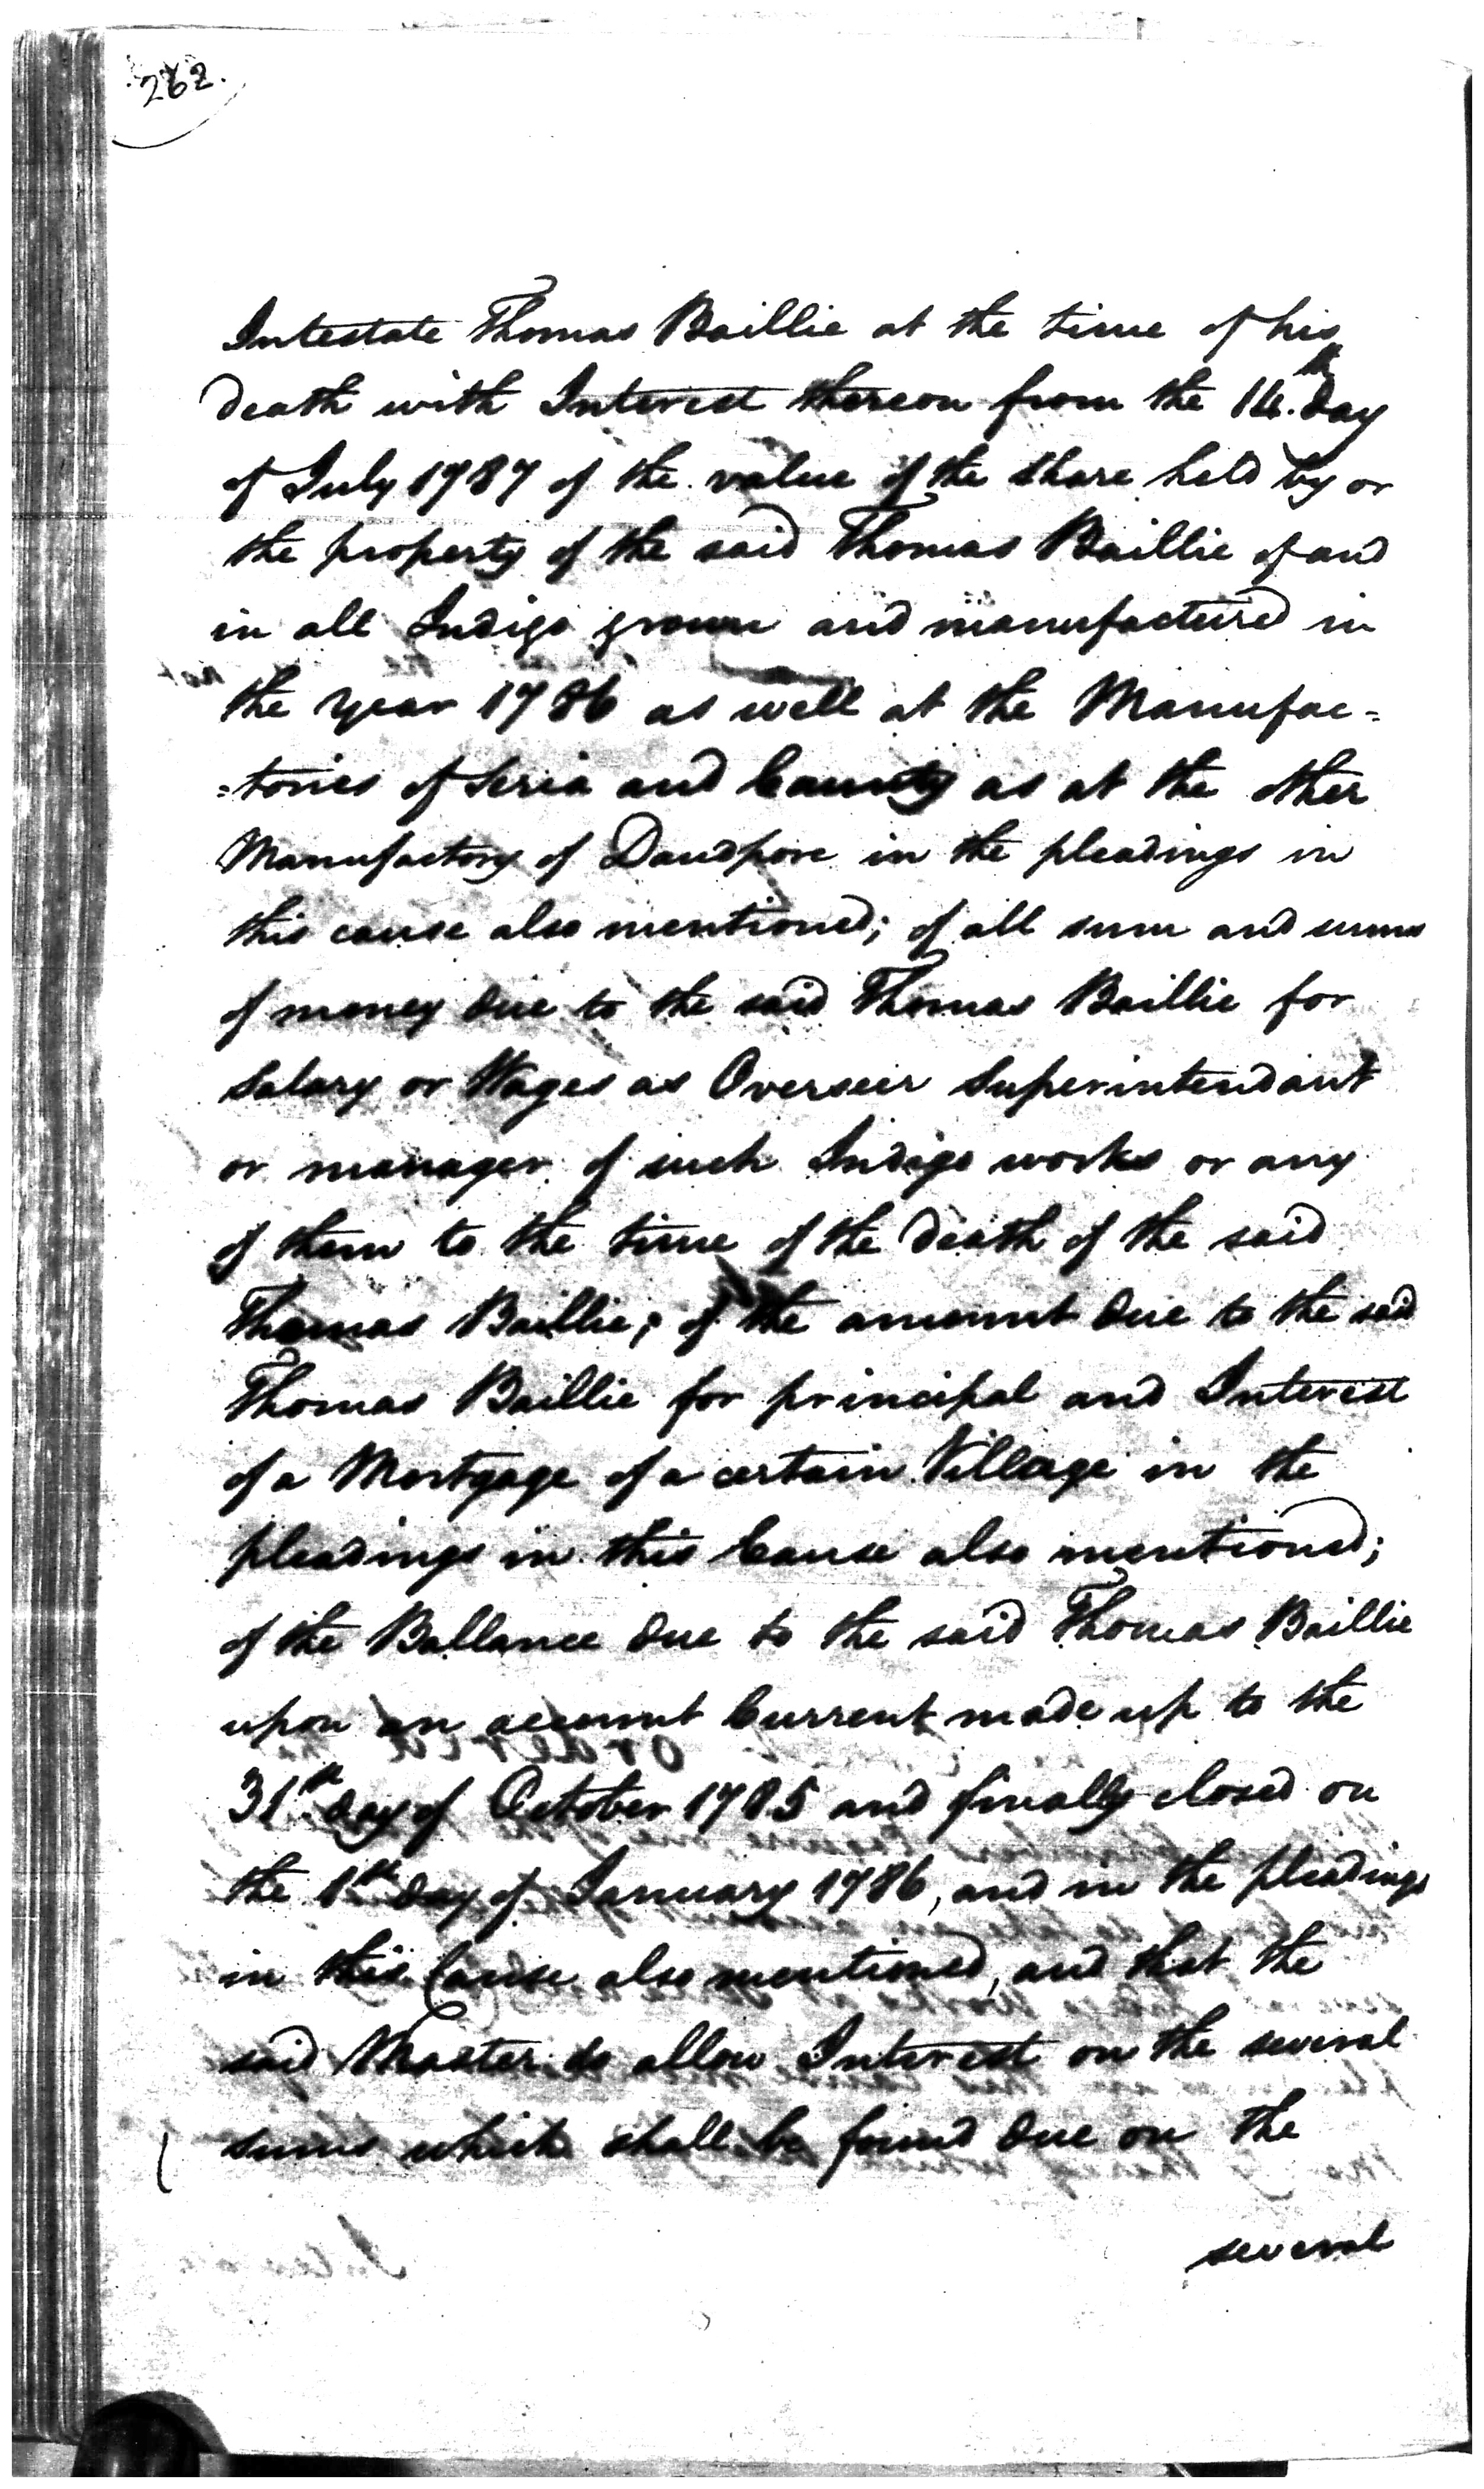 262.
Intestate Thomas Baillie at the time of his
death with Interest thereon from the 14.th day
of July 1787 of the value of the share held by or
the property of the said Thomas Baillie of and
in all Indigo grown and manufactured in
the year 1786 as well at the Manufac=
=tories of Seria and County as at the other
Manufactory of Daudpore in the pleadings in
this cause also mentioned; of all sum and sums
of money due to the said Thomas Baillie for
Salary or Wages as Overseer Superintendant
or manager of such Indigo works or any
of them to the time of the death of the said
Thomas Baillie; of the amount due to the said
Thomas Baillie for principal and Interest
of a Mortgage of a certain Village in the
pleadings in this Cause also mentioned;
of the Ballance due to the said Thomas Baillie
upon an account Current made up to the
31st day of October 1785 and finally closed on
the 1st day of January 1786, and in the pleadings
in this Cause also mentioned, and that the
said Master do allow Interest on the several
sums which shall be found due on the
several